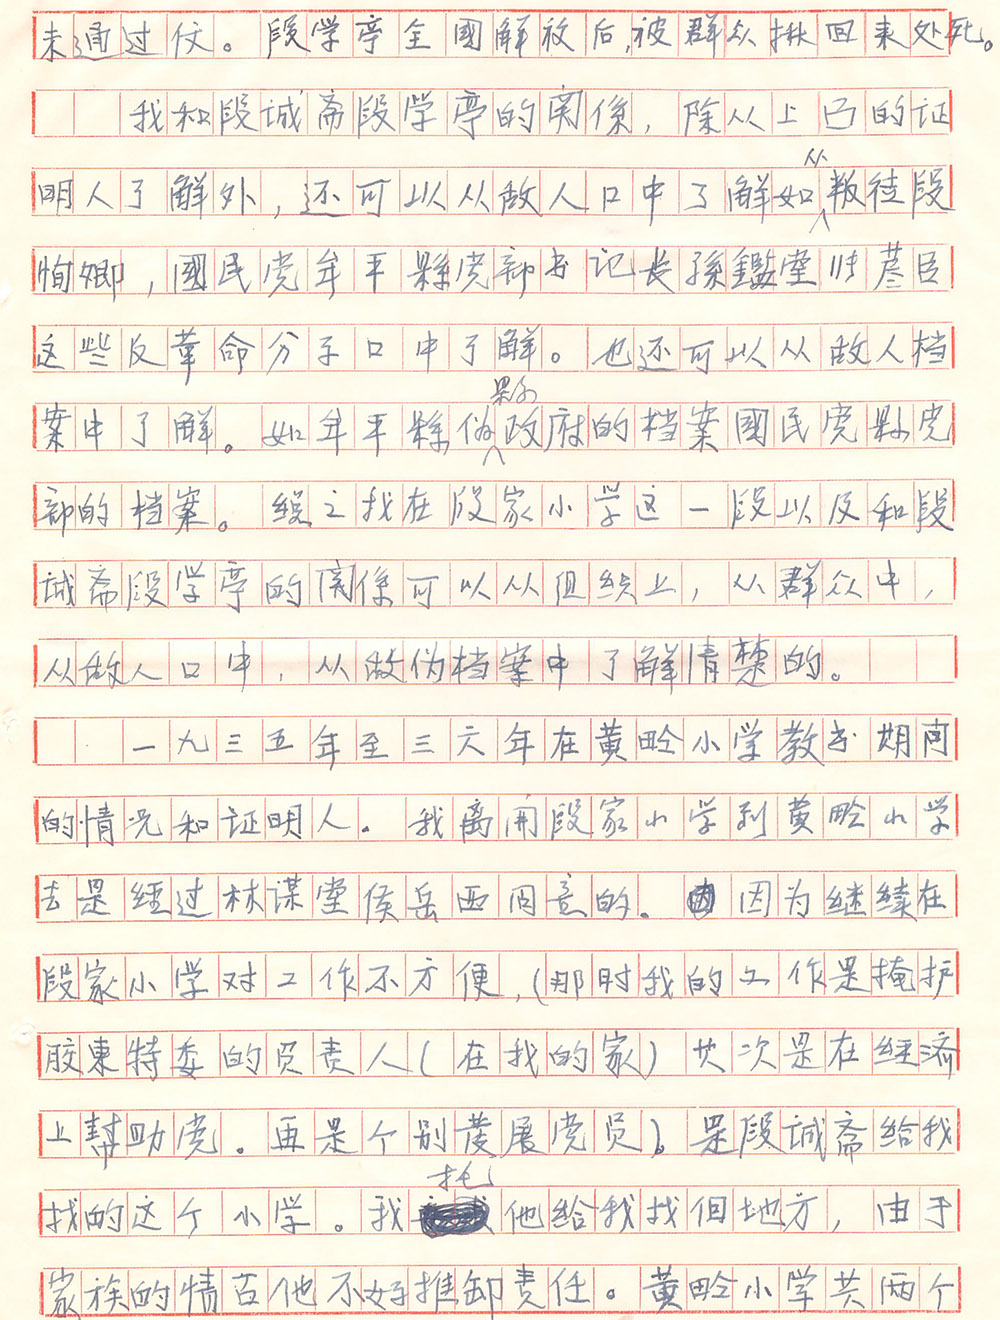 未通过仗。段学亭全國解放后,被群众揪回来处死。
我和段诚斋段学亭的関係，除从上边的证
明人了解外，还可以从敌人口中了解如从叛徒段
恂卿，國民党牟平縣党部书记长孫鑑堂 藎臣
这些反革命分子口中了解。也还可以从敌人档
案中了解。如牟平縣伪縣政府的档案國民党縣党
部的档案。總之我在段家小学这一段以及和段
诚斋段学亭的関係可以从组织上，从群众中，
从敌人口中，从敌伪档案中了解清楚的。
一九三五年至三六年在黄畛小学教书期间
的情况和证明人。我离開段家小学到黄畛小学
去是经过林谋堂侯岳西同意的。因为继续在
段家小学对工作不方便，(那时我的工作是掩护
胶東特委的负责人(在我的家)其次是在经济
上幫助党。再是个别發展党员)。是段诚斋给我
找的这个小学。我托他给我找但地方，由于
家族的情面他不好推卸责任。黄畛小学共两个